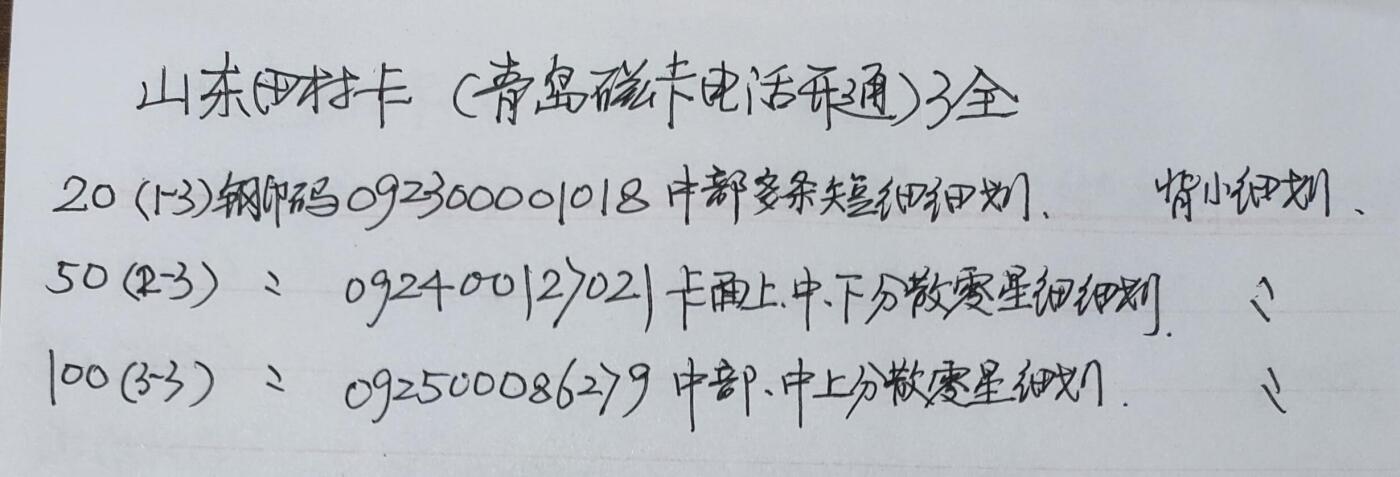 山东田村卡（青岛磁卡电话开通）3全
20（1-3）钢印码092300001018中部多条短细细划、 背小细划、
50（2-3） 〃 092400127021卡面上.中.下分散零星细细划. 〃
100（3-3） 〃 092500086279中部、中上分散零星细划. 〃